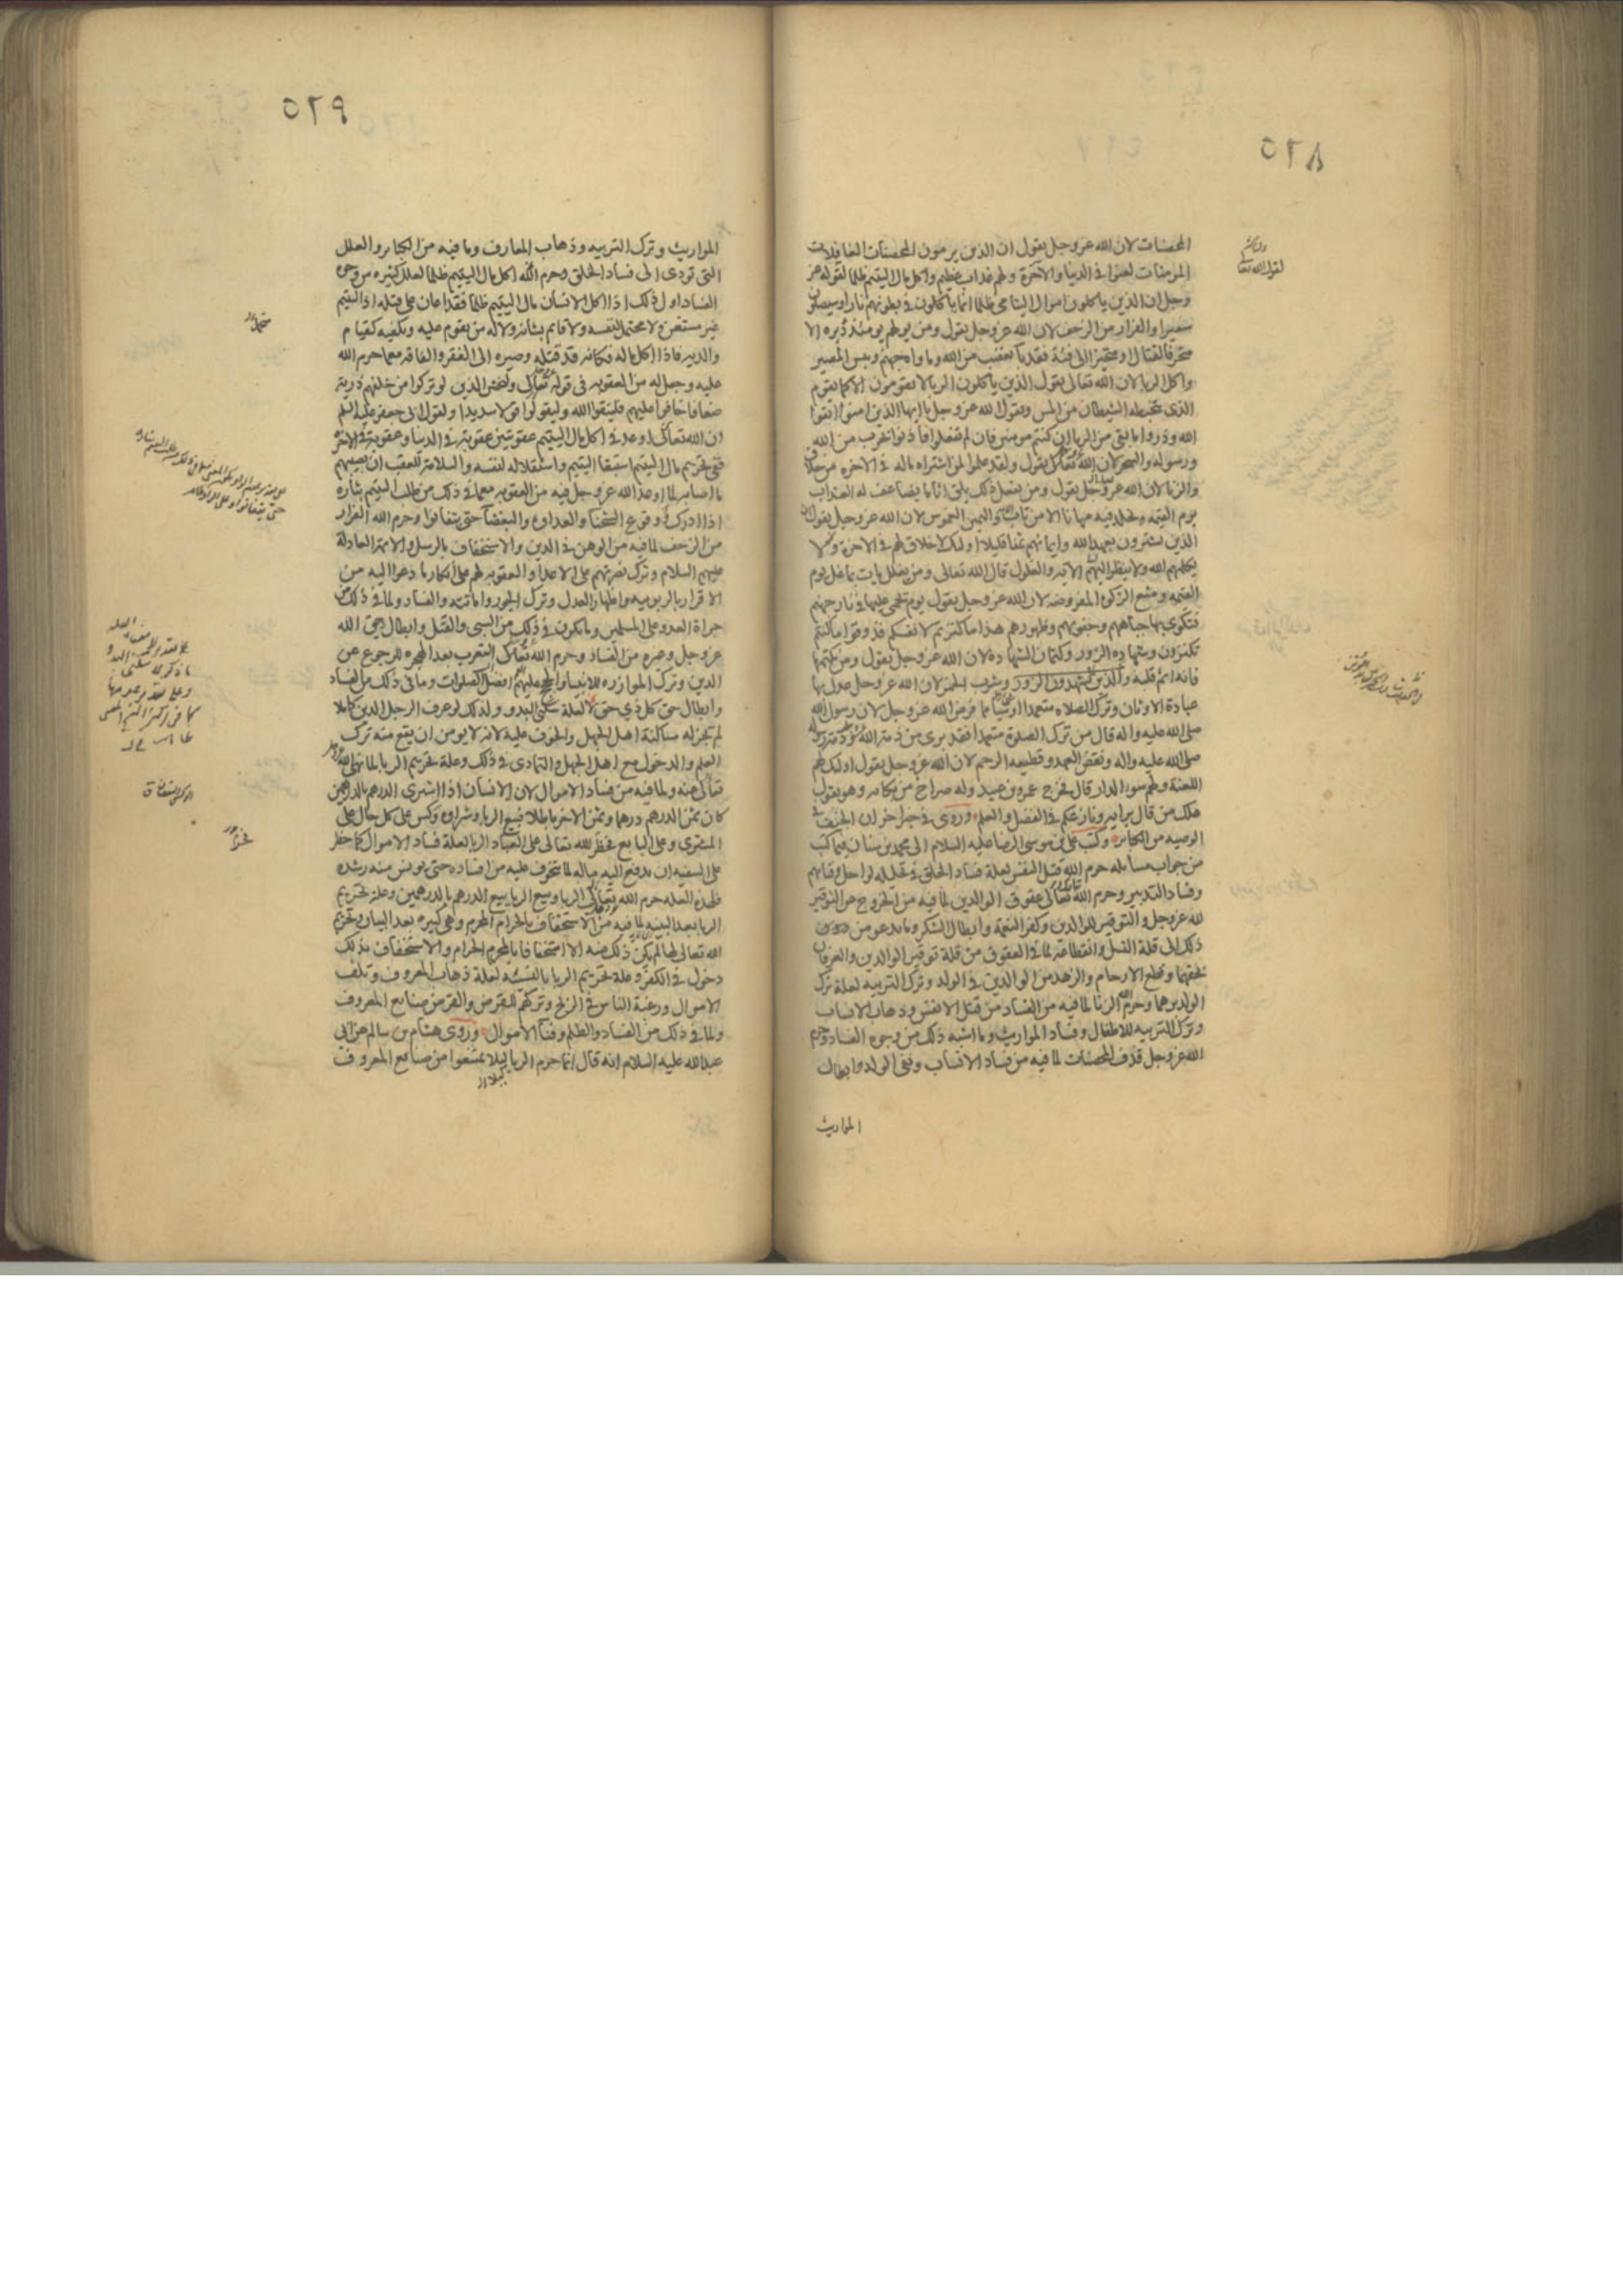 ٥٦٨
المحصنات لان الله عز وجل يقول ان الذين يرمون المحصنات الغافلات
المومنات لعنوا في الدنيا والاخرة ولهم عذاب عظيم واكل مال اليتيم ظلما لقوله عز
وجل ان الذين ياكلون اموال اليتامى ظلما انما ياكلون في بطونهم نارا وسيصلون
سعيرا والفرار من الزحف لان الله عز وجل يقول ومن يولهم يومئذ دبره الا
متحرفا لقتال او متحيزا الى فئة فقد باء بغضب من الله وماواه جهنم وبئس المصير
واكل الربا لان الله تعالى يقول الذين ياكلون الربا لا يقومون الا كما يقوم
الذي يتخبطه الشيطان من المس ويقول الله عز وجل يا ايها الذين امنوا اتقوا
الله وذروا ما بقي من الربا ان كنتم مومنين فان لم تفعلوا فاذنوا بحرب من الله
ورسوله والسحر لان الله تعالى يقول ولقد علموا لمن اشتراه ماله في الاخره من خلاق
والزنا لان الله عز وجل يقول ومن يفعل ذلك يلق اثاما يضاعف له العذاب
يوم القيمه ويخلد فيه مهانا الا من تاب واليمين الغموس لان الله عز وجل يقول ان
الذين يشترون بعهد الله وايمانهم ثمنا قليلا اولئك لا خلاق لهم في الاخرة ولا
يكلمهم الله ولا ينظر اليهم الايه والغلول قال الله تعالى ومن يغلل يات بما غل يوم
القيمه ومنع الزكوه المفروضه لان الله عز وجل يقول يوم يحمى عليها في نار جهنم
فتكوى بها جباههم وجنوبهم وظهورهم هذا ما كنزتم لانفسكم فذوقوا ما كنتم
تكنزون وشهاده الزور وكتمان الشهاده لان الله عز وجل يقول ومن يكتمها
فانه اثم قلبه والذين لا يشهدون الزور وشرب الخمر لان الله عز وجل عدل بها
عبادة الاوثان وترك الصلاه متعمدا او شيئا مما فرض الله عز وجل لان رسول الله
صلى الله عليه واله قال من ترك الصلوة متعمدا فقد برئ من ذمة الله وذمة رسوله
صلى الله عليه واله ونقض العهد وقطيعه الرحم لان الله عز وجل يقول اولئك لهم
اللعنة ولهم سوء الدار قال فخرج عمرو بن عبيد وله صراخ من بكائه وهو يقول
هلك من قال برايه ونازعكم في الفضل والعلم وروى في خبر اخر ان الحيف في
الوصيه من الكبائر وكتب علي بن موسى الرضا عليه السلام الى محمد بن سنان فيما كتب
من جواب مسائله حرم الله قتل النفس لعلة فساد الخلق في تحليله لو احل وفنائهم
وفساد التدبير وحرم الله تعالى عقوق الوالدين لما فيه من الخروج من التوقير
لله عز وجل والتوقير للوالدين وكفر النعمة وابطال الشكر وما يدعو من
ذلك الى قلة النسل وانقطاعه لما في العقوق من قلة توقير الوالدين والعرفان
بحقهما وقطع الارحام والزهد من الوالدين في الولد وترك التربيه لعلة ترك
الولد برهما وحرم الله الزنا لما فيه من الفساد من قتل الانفس وذهاب الانساب
وترك التربيه للاطفال وفساد المواريث وما اشبه ذلك من وجوه الفساد وحرم
الله عز وجل قذف المحصنات لما فيه من فساد الانساب ونفي الولد وابطال
المواريث
لقول الله تعالى
٥٦٩
المواريث وترك التربيه وذهاب المعارف وما فيه من الكبائر والعلل
التي تودي الى فساد الخلق وحرم الله اكل مال اليتيم ظلما لعلل كثيره من وجوه
الفساد اول ذلك اذا اكل الانسان مال اليتيم ظلما فقد اعان على قتله اذ اليتيم
غير مستغن ولا محتمل لنفسه ولا قايم بشانه ولا له من يقوم عليه ويكفيه كقيام
والديه فاذا اكل ماله فكانه قد قتله وصيره الى الفقر والفاقه مع ما حرم الله
عليه وجعل له من العقوبه في قوله تعالى وليخش الذين لو تركوا من خلفهم ذرية
ضعافا خافوا عليهم فليتقوا الله وليقولوا قولا سديدا ولقول ابي جعفر عليه السلم
ان الله تعالى اوعد في اكل مال اليتيم عقوبتين عقوبة في الدنيا وعقوبة في الاخره
ففي تحريم مال اليتيم استبقاء اليتيم واستقلاله لنفسه والسلامة للعقب ان يصيبهم
ما اصابه لما اوعد الله عز وجل فيه من العقوبه مع ما في ذلك من طلب اليتيم بثاره
اذا ادرك ووقوع الشحناء والعداوه والبغضاء حتى يتفانوا وحرم الله الفرار
من الزحف لما فيه من الوهن في الدين والاستخفاف بالرسل والائمة العادلة
عليهم السلام وترك نصرتهم على الاعداء والعقوبه لهم على انكار ما دعوا اليه من
الاقرار بالربوبيه واظهار العدل وترك الجور واماتته والفساد ولما في ذلك من
جراة العدو على المسلمين وما يكون في ذلك من السبي والقتل وابطال حق الله
عز وجل وغيره من الفساد وحرم الله تعالى التعرب بعد الهجره للرجوع عن
الدين وترك الموازره للانبياء والحجج عليهم افضل الصلوات وما في ذلك من الفساد
وابطال حق كل ذي حق لا لعلة سكنى البدو ولذلك لو عرف الرجل الدين كاملا
لم يجز له مساكنة اهل الجهل والخوف عليه لانه لا يومن ان يقع منه ترك
العلم والدخول مع اهل الجهل والتمادي في ذلك وعلة تحريم الربا لما نهى الله
تعالى عنه ولما فيه من فساد الاموال لان الانسان اذا اشترى الدرهم بالدرهمين
كان ثمن الدرهم درهما وثمن الاخر باطلا فبيع الربا وشراوه وكس على كل حال على
المشتري وعلى البايع فحظر الله تعالى على العباد الربا لعلة فساد الاموال كما حظر
على السفيه ان يدفع اليه ماله لما يتخوف عليه من افساده حتى يونس منه رشده
فلهذه العله حرم الله تعالى الربا وبيع الربا بيع الدرهم بالدرهمين وعلة تحريم
الربا بعد البينه لما فيه من الاستخفاف بالحرام المحرم وهي كبيره بعد البيان وتحريم
الله تعالى لها لم يكن ذلك منه الا استخفافا بالمحرم الحرام والاستخفاف بذلك
دخول في الكفر وعلة تحريم الربا بالنسئه لعلة ذهاب المعروف وتلف
الاموال ورغبة الناس في الربح وتركهم للقرض والقرض من صنايع المعروف
ولما في ذلك من الفساد والظلم وفناء الاموال وروى هشام بن سالم عن ابي
عبد الله عليه السلام انه قال انما حرم الربا ليلا تمتنعوا من صنايع المعروف